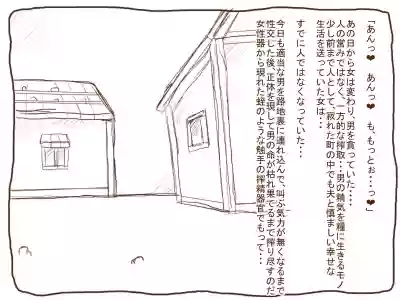 「あんっ❤ あんっ❤ も、もっとぉ・・・っ❤」
あの日から女は変わり、男を貪っていた・・・。
人の営みではなく、一方的な搾取・・男の精気を糧に生きるモノ
少し前まで人として、寂れた町の中でも夫と慎ましい幸せな
生活を送っていた女は・・・
すでに人ではなくなっていた・・・
今日も適当な男を路地裏に連れ込んで、叫ぶ気力が無くなるまで
性交した後、正体を現して男の命が枯れ果てるまで搾り尽すのだ
女性器から現れた蛭のような触手の搾精器官でもって・・・